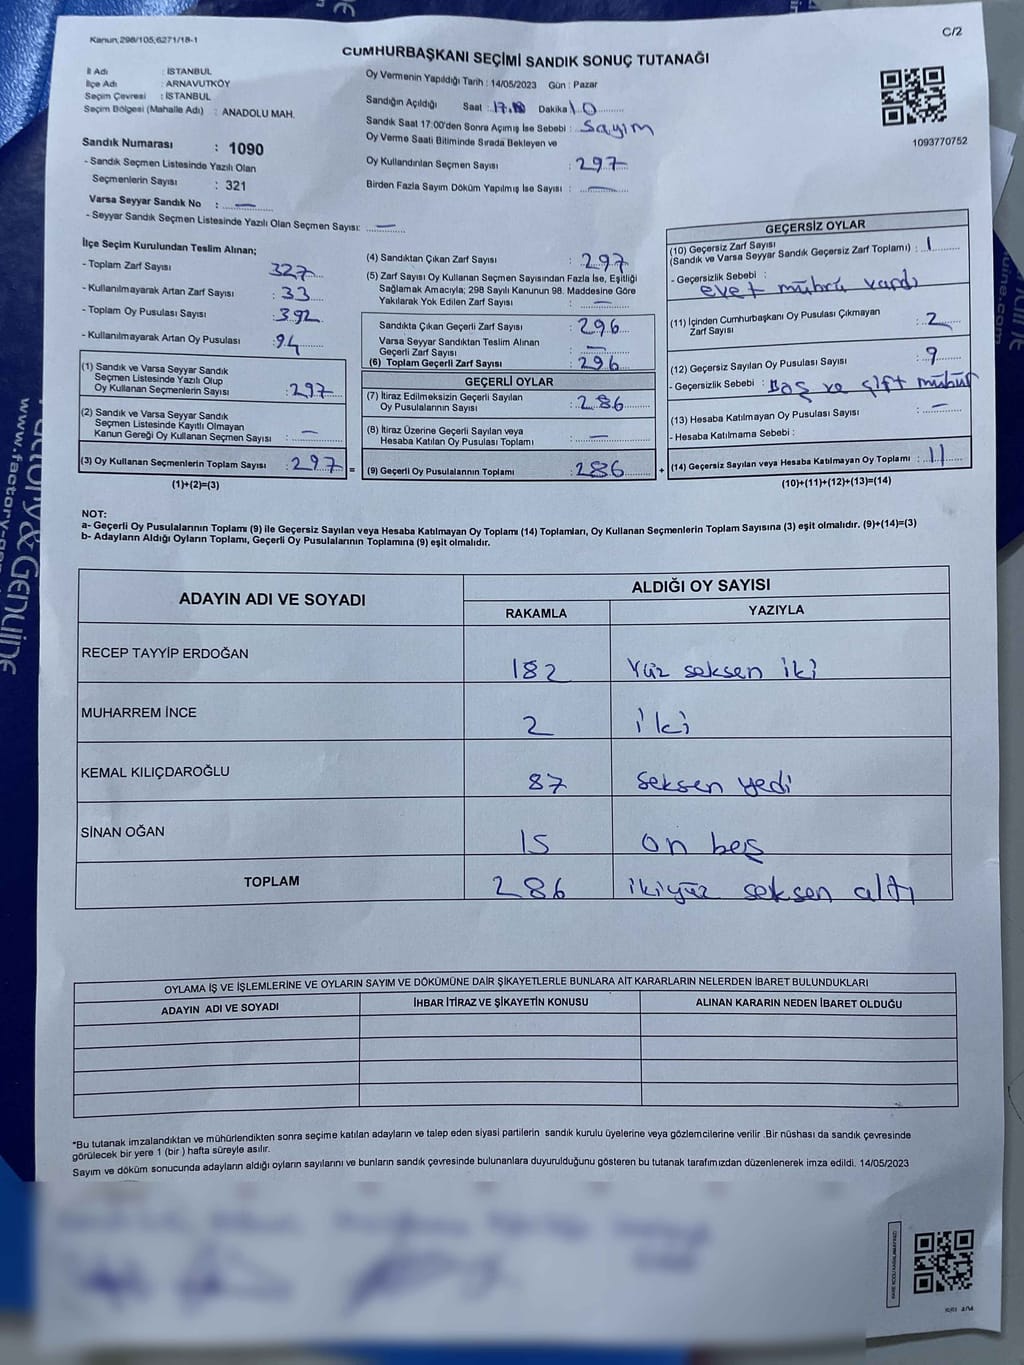 Kanun:298/105,6271/18-1
C/2
CUMHURBAŞKANI SEÇİMİ SANDIK SONUÇ TUTANAĞI
İl Adı : İSTANBUL
İlçe Adı : ARNAVUTKÖY
Seçim Çevresi : İSTANBUL
Seçim Bölgesi (Mahalle Adı) : ANADOLU MAH.
Oy Vermenin Yapıldığı Tarih : 14/05/2023 Gün : Pazar
Sandığın Açıldığı Saat : Dakika 10
Sandık Saat 17:00'den Sonra Açımış İse Sebebi : Sayım
Oy Verme Saati Bitiminde Sırada Bekleyen ve
Oy Kullandırılan Seçmen Sayısı : 297
Birden Fazla Sayım Döküm Yapılmış İse Sayısı : —
1093770752
Sandık Numarası : 1090
- Sandık Seçmen Listesinde Yazılı Olan
Seçmenlerin Sayısı : 321
Varsa Seyyar Sandık No : —
- Seyyar Sandık Seçmen Listesinde Yazılı Olan Seçmen Sayısı: —
İlçe Seçim Kurulundan Teslim Alınan;
- Toplam Zarf Sayısı 327
- Kullanılmayarak Artan Zarf Sayısı : 33
- Toplam Oy Pusulası Sayısı : 392
- Kullanılmayarak Artan Oy Pusulası : 94
(1) Sandık ve Varsa Seyyar Sandık
Seçmen Listesinde Yazılı Olup
Oy Kullanan Seçmenlerin Sayısı : 297
(2) Sandık ve Varsa Seyyar Sandık
Seçmen Listesinde Kayıtlı Olmayan
Kanun Gereği Oy Kullanan Seçmen Sayısı : —
(3) Oy Kullanan Seçmenlerin Toplam Sayısı : 297 =
(1)+(2)=(3)
(4) Sandıktan Çıkan Zarf Sayısı : 297
(5) Zarf Sayısı Oy Kullanan Seçmen Sayısından Fazla İse, Eşitliği
Sağlamak Amacıyla; 298 Sayılı Kanunun 98. Maddesine Göre
Yakılarak Yok Edilen Zarf Sayısı : —
Sandıkta Çıkan Geçerli Zarf Sayısı : 296
Varsa Seyyar Sandıktan Teslim Alınan
Geçerli Zarf Sayısı : —
(6) Toplam Geçerli Zarf Sayısı : 296
GEÇERLİ OYLAR
(7) İtiraz Edilmeksizin Geçerli Sayılan
Oy Pusulalarının Sayısı : 286
(8) İtiraz Üzerine Geçerli Sayılan veya
Hesaba Katılan Oy Pusulası Toplamı : —
(9) Geçerli Oy Pusulalarının Toplamı : 286 +
GEÇERSİZ OYLAR
(10) Geçersiz Zarf Sayısı
(Sandık ve Varsa Seyyar Sandık Geçersiz Zarf Toplamı) : 1
- Geçersizlik Sebebi :
evet mührü vardı
(11) İçinden Cumhurbaşkanı Oy Pusulası Çıkmayan
Zarf Sayısı : 2
(12) Geçersiz Sayılan Oy Pusulası Sayısı : 9
- Geçersizlik Sebebi : Boş ve çift mühür
(13) Hesaba Katılmayan Oy Pusulası Sayısı : —
- Hesaba Katılmama Sebebi :
(14) Geçersiz Sayılan veya Hesaba Katılmayan Oy Toplamı : 11
(10)+(11)+(12)+(13)=(14)
NOT:
a- Geçerli Oy Pusulalarının Toplamı (9) ile Geçersiz Sayılan veya Hesaba Katılmayan Oy Toplamı (14) Toplamları, Oy Kullanan Seçmenlerin Toplam Sayısına (3) eşit olmalıdır. (9)+(14)=(3)
b- Adayların Aldığı Oyların Toplamı, Geçerli Oy Pusulalarının Toplamına (9) eşit olmalıdır.
ADAYIN ADI VE SOYADI
ALDIĞI OY SAYISI
RAKAMLA YAZIYLA
RECEP TAYYİP ERDOĞAN 182 Yüz seksen iki
MUHARREM İNCE 2 iki
KEMAL KILIÇDAROĞLU 87 Seksen yedi
SİNAN OĞAN 15 on beş
TOPLAM 286 ikiyüz seksen altı
OYLAMA İŞ VE İŞLEMLERİNE VE OYLARIN SAYIM VE DÖKÜMÜNE DAİR ŞİKAYETLERLE BUNLARA AİT KARARLARIN NELERDEN İBARET BULUNDUKLARI
ADAYIN ADI VE SOYADI İHBAR İTİRAZ VE ŞİKAYETİN KONUSU ALINAN KARARIN NEDEN İBARET OLDUĞU
*Bu tutanak imzalandıktan ve mühürlendikten sonra seçime katılan adayların ve talep eden siyasi partilerin sandık kurulu üyelerine veya gözlemcilerine verilir .Bir nüshası da sandık çevresinde
görülecek bir yere 1 (bir ) hafta süreyle asılır.
Sayım ve döküm sonucunda adayların aldığı oyların sayılarını ve bunların sandık çevresinde bulunanlara duyurulduğunu gösteren bu tutanak tarafımızdan düzenlenerek imza edildi. 14/05/2023